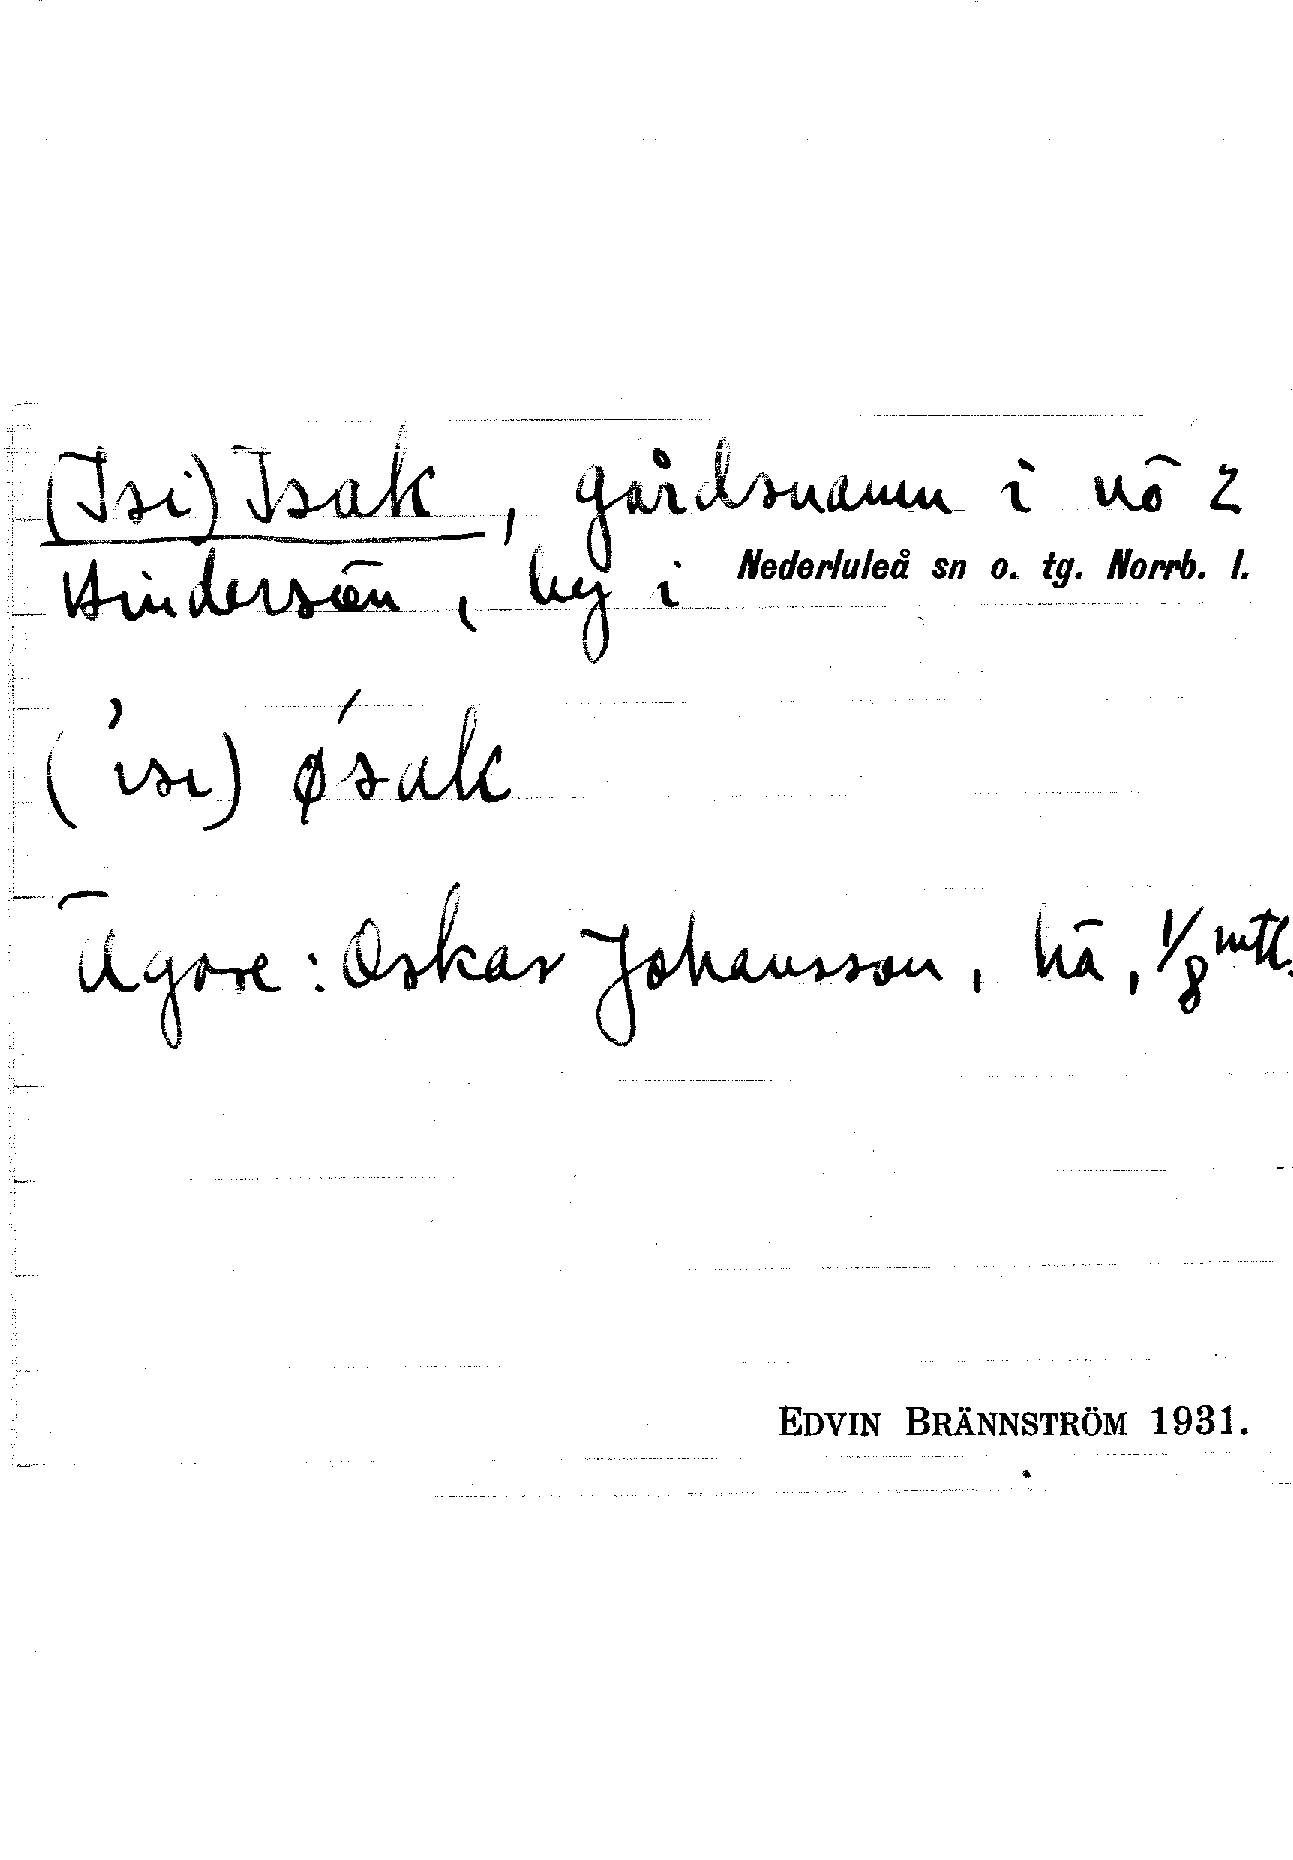 (Isi) Isak, gårdsnamn i nö 2
Hindersön, by i Nederluleå sn o. tg. Norrb. l.
('ısı) ǿsak
Ägare: Oskar Johansson, hä, 1/8 mtl.
EDVIN BRÄNNSTRÖM 1931.